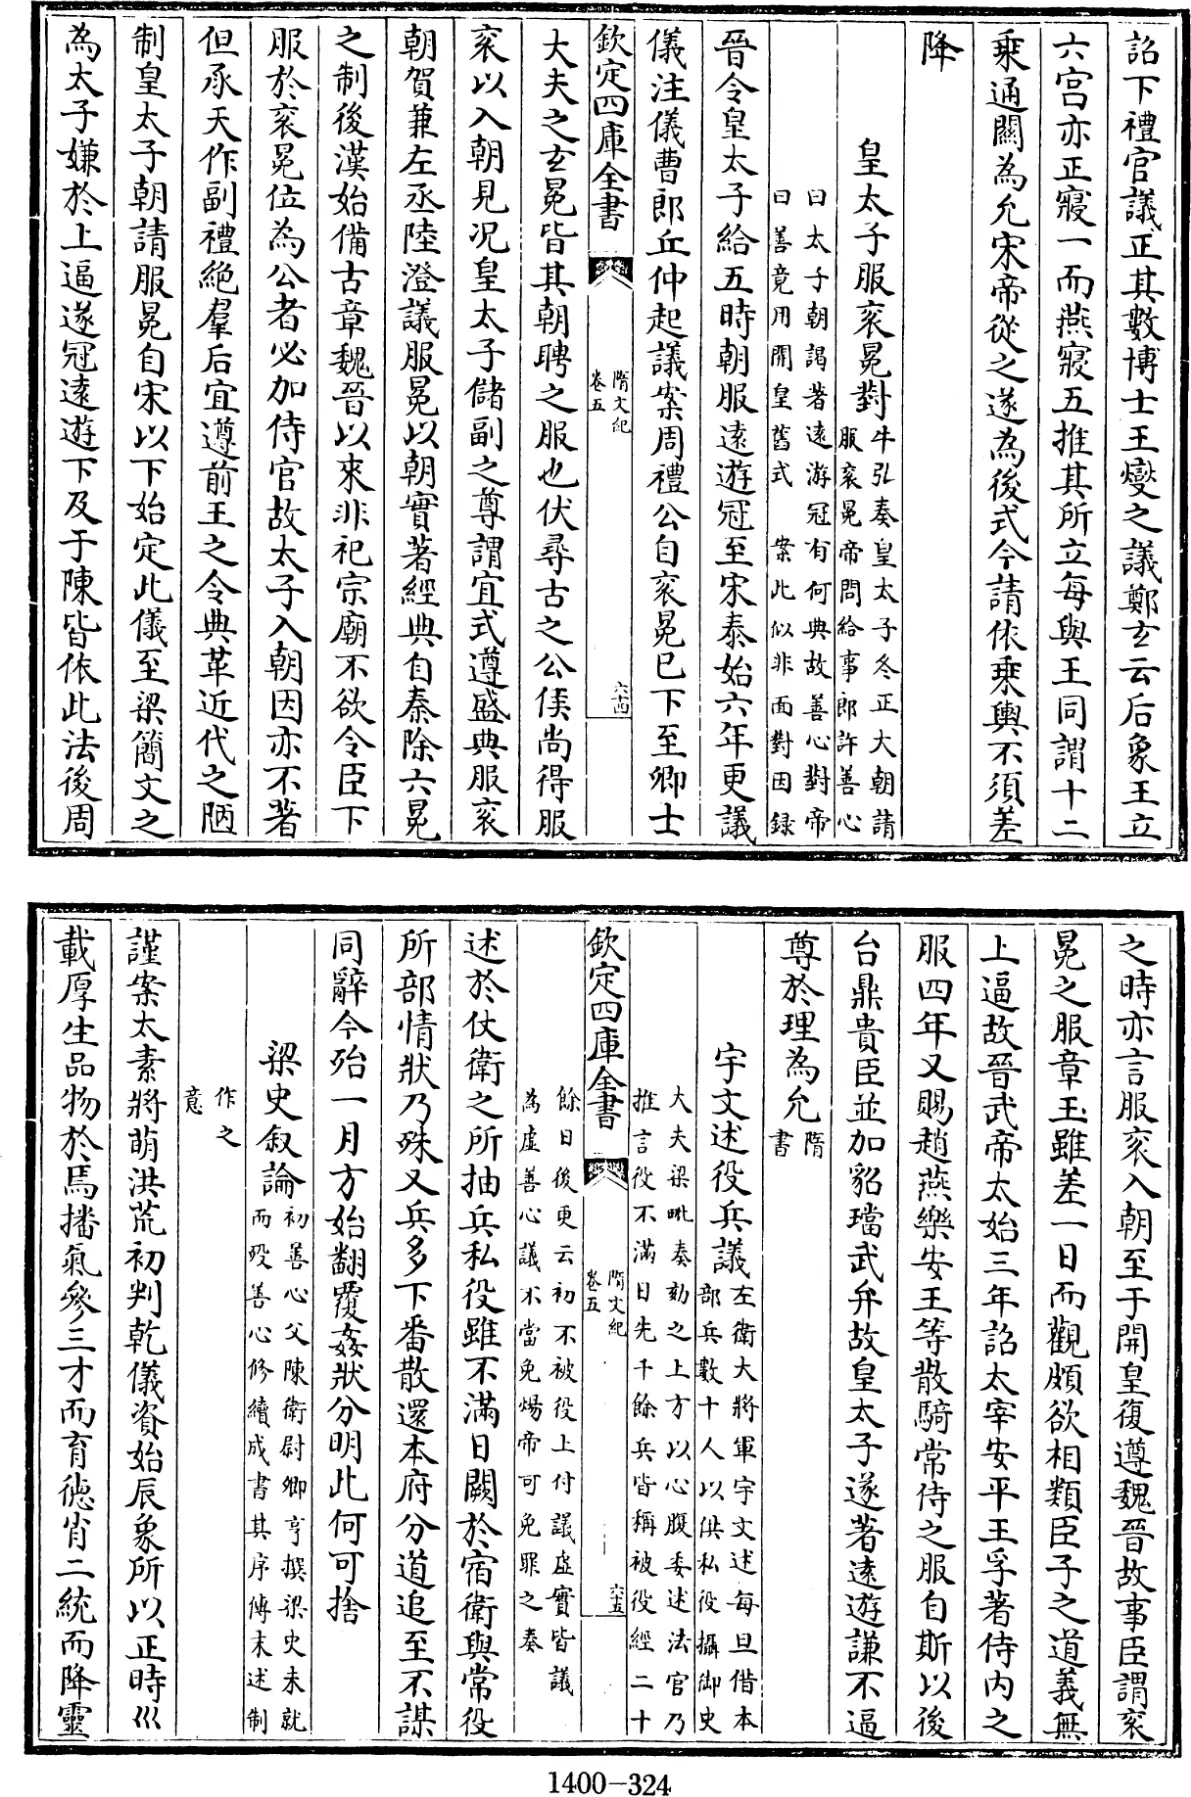 詔下禮官議正其數博士王燮之議鄭玄云后象王立
六宫亦正寢一而燕寢五推其所立每與王同謂十二
乘通關為允宋帝從之遂為後式今請依乘輿不須差
降
皇太子服衮冕對
牛弘奏皇太子冬正大朝請
服衮冕帝問給事郎許善心
曰太子朝謁著逺游冠有何典故善心對帝
曰善竟用開皇舊式 案此似非面對因録
晉令皇太子給五時朝服逺遊冠至宋泰始六年更議
儀注儀曹郎丘仲起議案周禮公自衮冕已下至卿士
欽定四庫全書
隋文紀
卷五
六十四
大夫之玄冕皆其朝聘之服也伏尋古之公侯尚得服
衮以入朝見况皇太子儲副之尊謂宜式遵盛典服衮
朝賀兼左丞陸澄議服冕以朝實著經典自秦除六冕
之制後漢始備古章魏晉以來非祀宗廟不欲令臣下
服於衮冕位為公者必加侍官故太子入朝因亦不著
但承天作副禮絶羣后宜遵前王之令典革近代之陋
制皇太子朝請服冕自宋以下始定此儀至梁簡文之
為太子嫌於上逼遂冠逺遊下及于陳皆依此法後周
之時亦言服衮入朝至于開皇復遵魏晉故事臣謂衮
冕之服章玉雖差一日而觀頗欲相類臣子之道義無
上逼故晉武帝太始三年詔太宰安平王孚著侍内之
服四年又賜趙燕樂安王等散騎常侍之服自斯以後
台鼎貴臣並加貂璫武弁故皇太子遂著逺遊謙不逼
尊於理為允
隋
書
宇文述役兵議
左衛大將軍宇文述每旦借本
部兵數十人以供私役攝御史
大夫梁毗奏劾之上方以心腹委述法官乃
推言役不滿日先千餘兵皆稱被役經二十
欽定四庫全書
隋文紀
卷五
六十五
餘日後更云初不被役上付議虚實皆議
為虚善心議不當免煬帝可免罪之奏
述於仗衛之所抽兵私役雖不滿日闕於宿衛與常役
所部情狀乃殊又兵多下番散還本府分道追至不謀
同辭今殆一月方始翻覆姦狀分明此何可捨
梁史叙論
初善心父陳衛尉卿亨撰梁史未就
而殁善心修續成書其序傳末述制
作之
意
謹案太素將萌洪荒初判乾儀資始辰象所以正時巛
載厚生品物於焉播氣參三才而育徳肖二統而降靈
1400-324